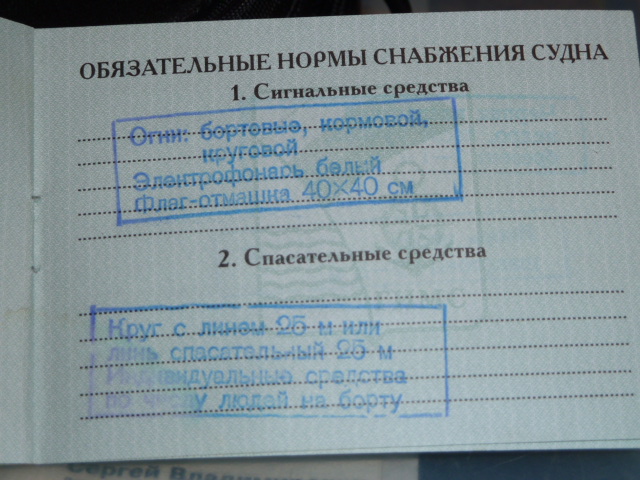 ОБЯЗАТЕЛЬНЫЕ НОРМЫ СНАБЖЕНИЯ СУДНА
1. Сигнальные средства
Огни: бортовые, кормовой,
круговой
Электрофонарь белый
Флаг-отмашка 40×40 см
2. Спасательные средства
Круг с линем 25 м или
линь спасательный 25 м
Индивидуальные средства
по числу людей на борту
Сергей